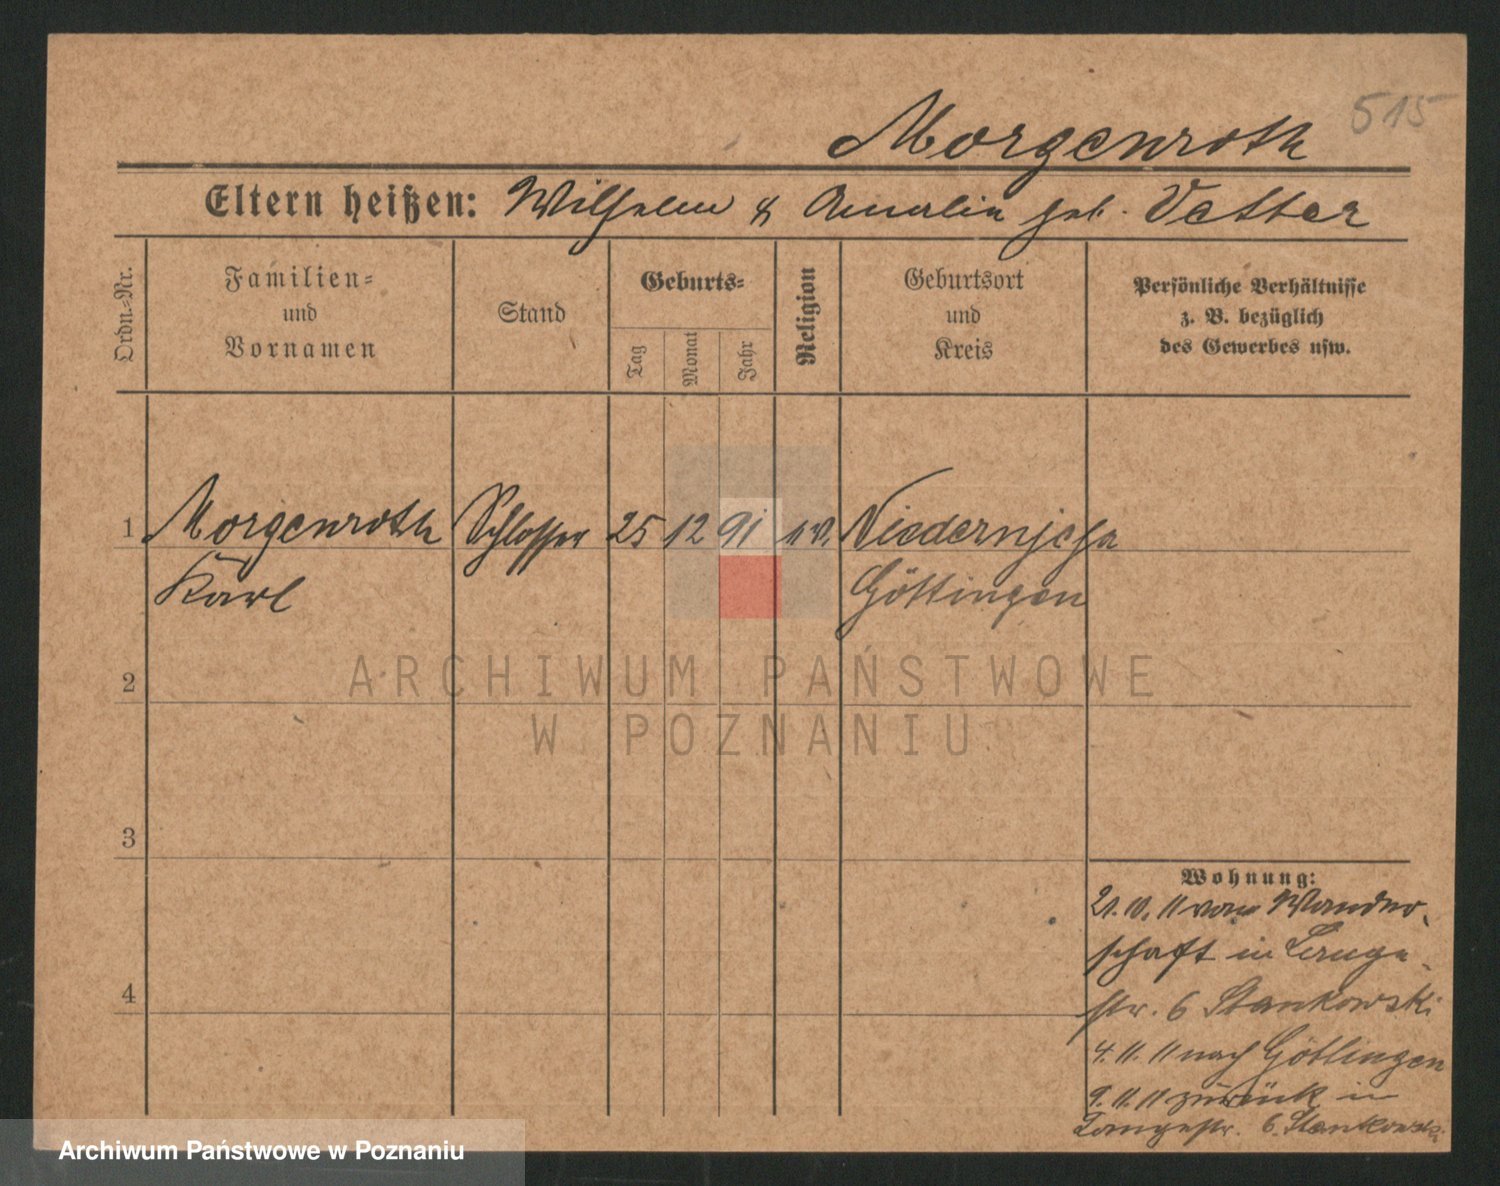 515
Morgenroth
Eltern heißen: Wilhelm & Amalia geb. Vetter
Ordn.-Nr.
Familien-
und
Vornamen
Stand
Geburts-
Tag
Monat
Jahr
Religion
Geburtsort
und
Kreis
Persönliche Verhältnisse
z. B. bezüglich
des Gewerbes usw.
1 Morgenroth Schlosser 25 12 91 Niedernjesa
Karl Göttingen
2
3
4
Wohnung:
21.10.11 von Wander-
schaft in Lange-
str. 6 Stankowski
4.11.11 nach Göttingen
9.11.11 zurück in
Langestr. 6. Stankowski
ARCHIWUM PAŃSTWOWE
W POZNANIU
Archiwum Państwowe w Poznaniu